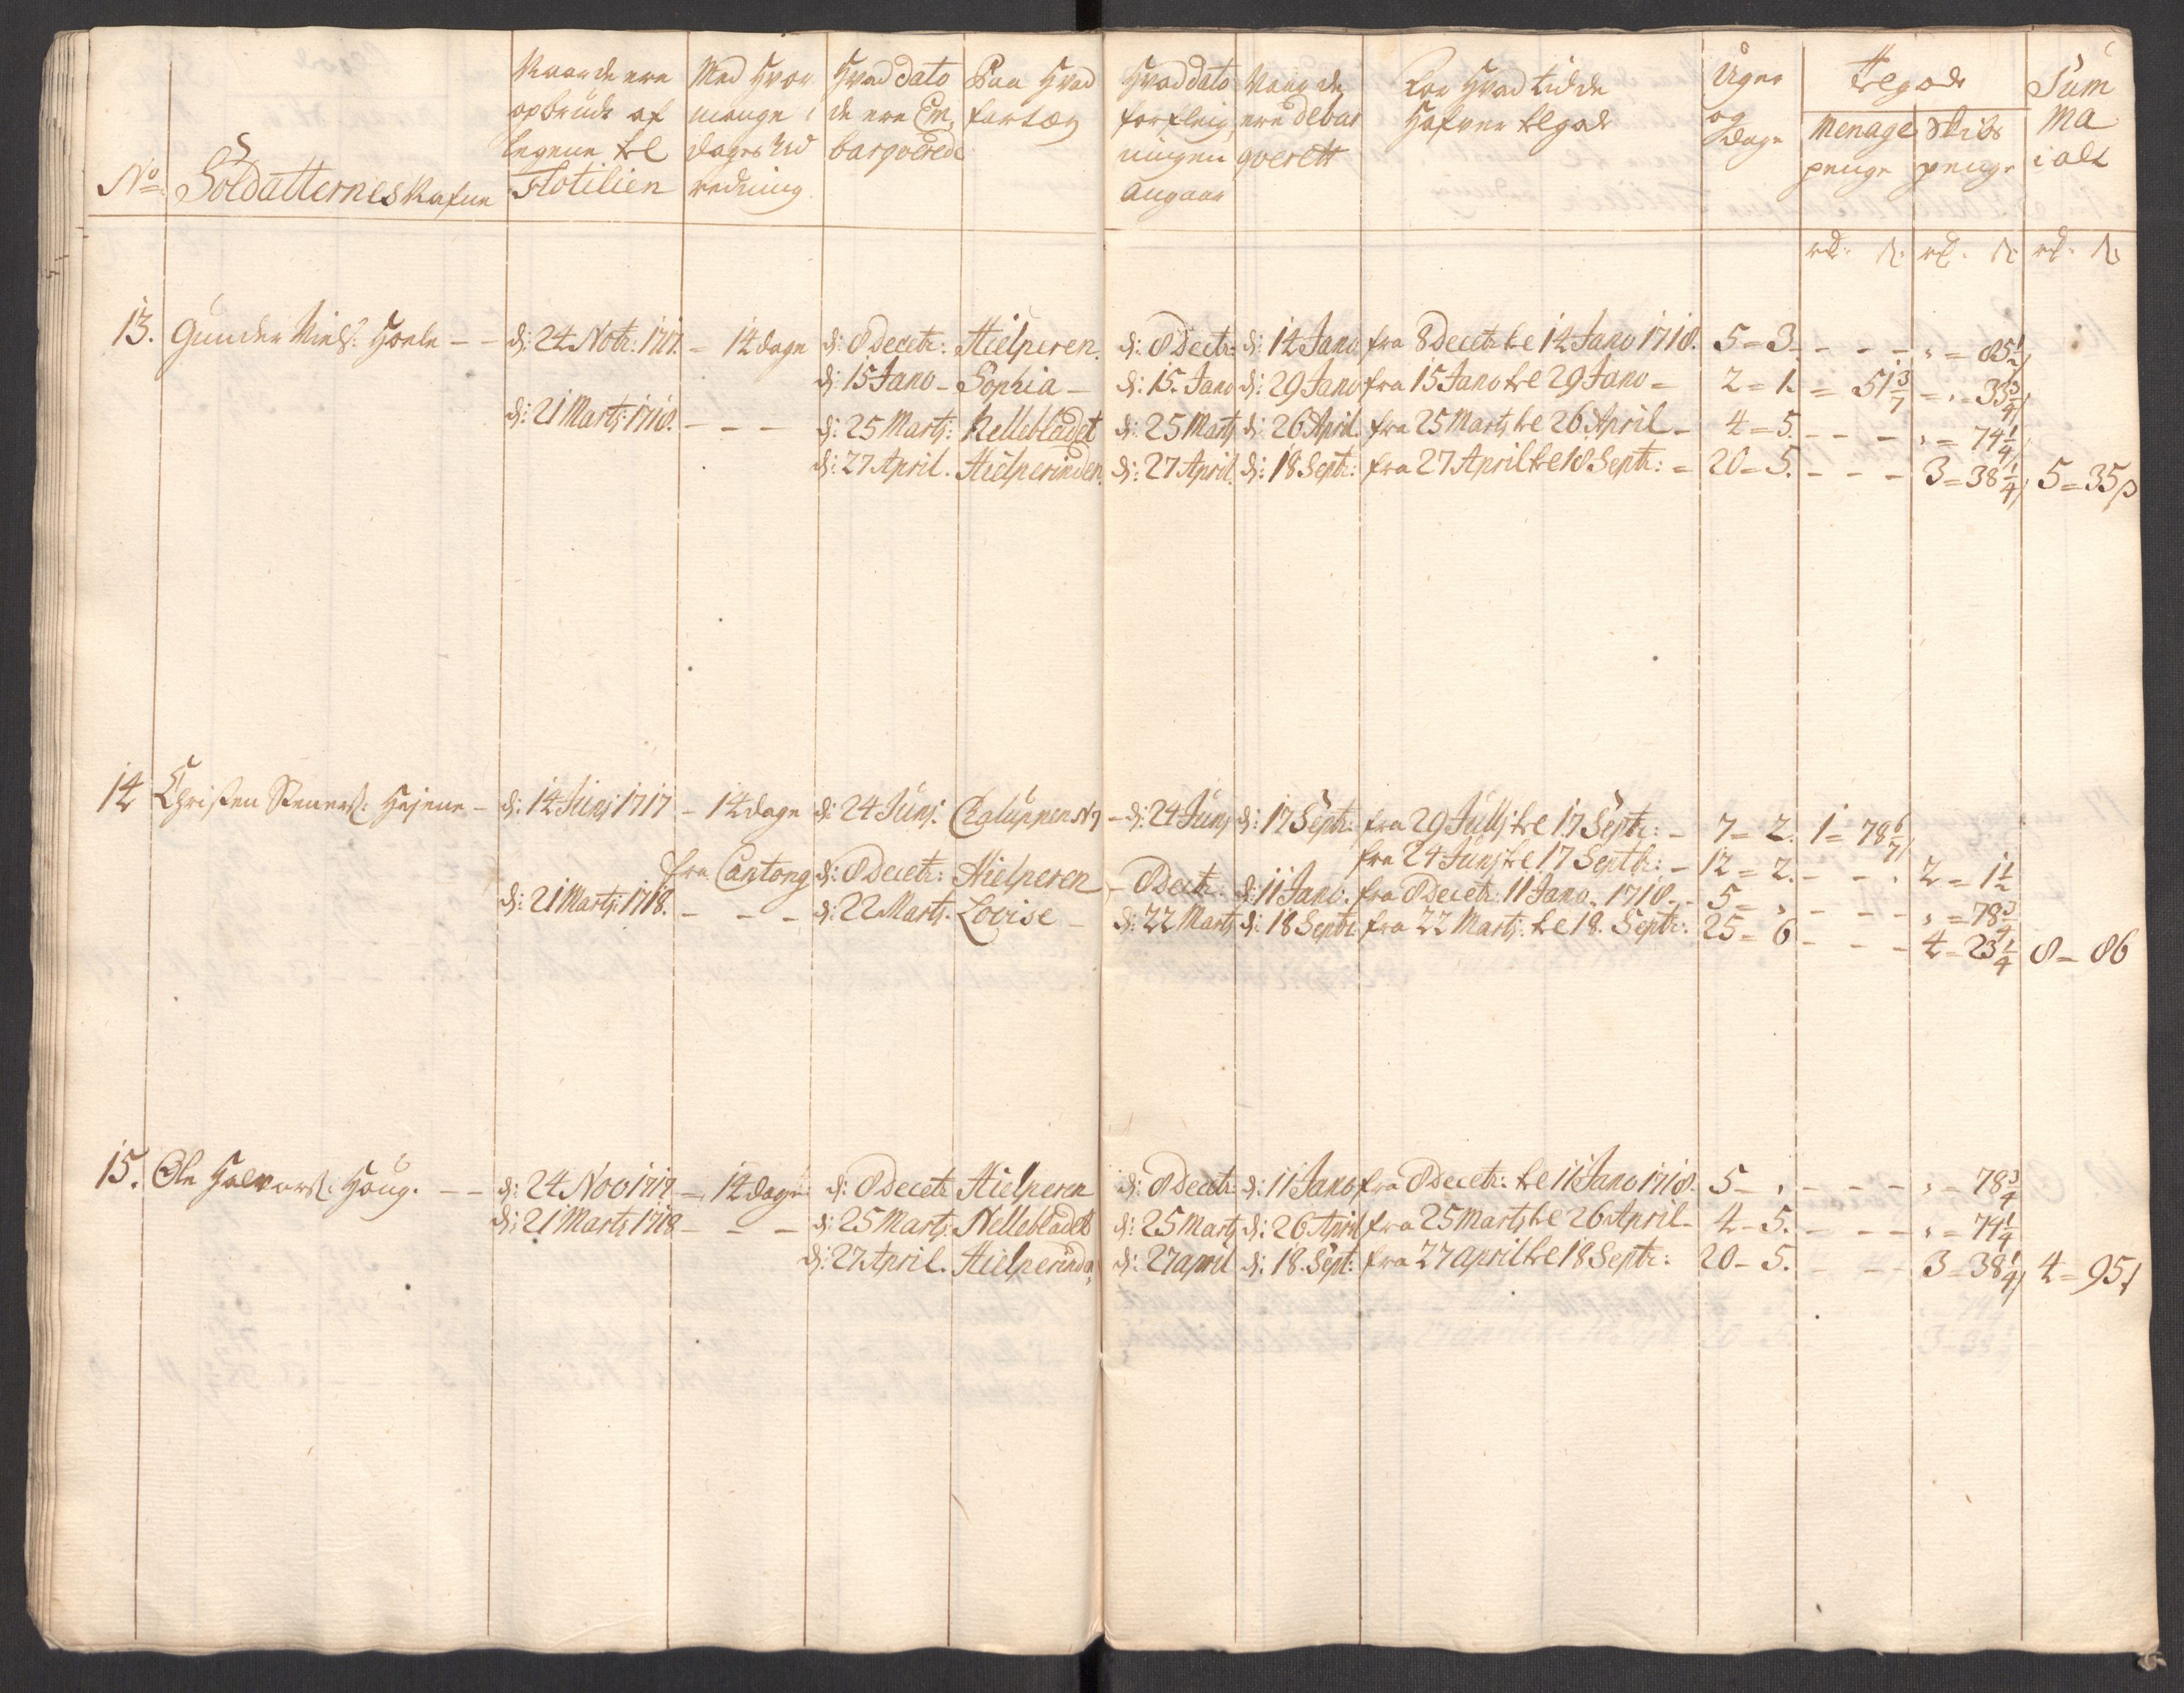 No
Soldatternes Nafne
Naar de ere opbrudt af legene til Flotilien
Med Hvor mange dages Ud redning
Hvad dato de ere Em, barqverede
Paa Hvad fartøy
Hvad dato forfleig, ningen angaar
Naar de ere debar qverett
For Hvad tid de Hafver tilgode
Uger og Dage
tilgode
Menage penge
Skibs penge
Summa i alt
rd: ß: rd: ß: rd: ß:
13. Gunder Niels: Hoele - - d: 24 Notr: 1717. - 14 dage d: 8 Decetr: Hielperen. d: 8 Decetr: d: 14 Jano fra 8 Decetr te 14 Jano 1718. 5=3. - - - , = 85 1/2
d: 15 Jano - Sophia - d: 15. Jano d: 29 Jano fra 15 Jano tel 29 Jano = 2=1. = 51 3/7 = , = 33 3/4
d: 21 Marts: 1718. - - - d: 25 Marts: Nellebladet d: 25 Marts d: 26 April. fra 25 Marts tel 26 April - 4=5. - - - , = 74 1/4
d: 27 April. Hielperinden. d: 27 April. d: 18 Septr: fra 27 April tel 18 Septr: = 20=5. - - - 3=38 1/4 5=35 ß
14 Christen Steners: Hejene - d: 14 Junj 1717 - 14 dage d: 24 Junj. Chaluppen No 7 - d: 24 Junj d: 17 Septr: fra 29 Julij tel 17 Septr: - 7=2. 1=78 6/7
fra 24 Junj tel 17 Septbr: - 12=2. - - . 2=1 1/2
fra Cantong d: 8 Decetr: Hielperen - 8 Decetr: d: 11 Jano. fra 8 Decetr: 11 Jano. 1718. - 5=, - - - , =78 3/4
d: 21 Marts: 1718. - - - d: 22 Marts. Lovise - d: 22 Marts d: 18 Septr. fra 22 Marts: tel 18. Septr: 25=6 - - - 4=23 1/4 8-86
15. Ole Halvors: Haug. - - d: 24 Nov 1717 = 14 dage d: 8 Decetr Hielperen d: 8 Decetr d: 11 Jano fra 8 Decetr: tel 11 Jano 1718. 5-, - - - , = 78 3/4
d: 21 Marts 1718 - - - d: 25 Marts: Nellebladet d: 25 Marts d: 26 April fra 25 Marts tel 26 April - 4-5. - - - , = 74 1/4
d: 27 April. Hielperinden, d: 27 april d: 18. Sept: fra 27 april tel 18 Septr: 20-5. - - - 3=38 1/4 4=95 1